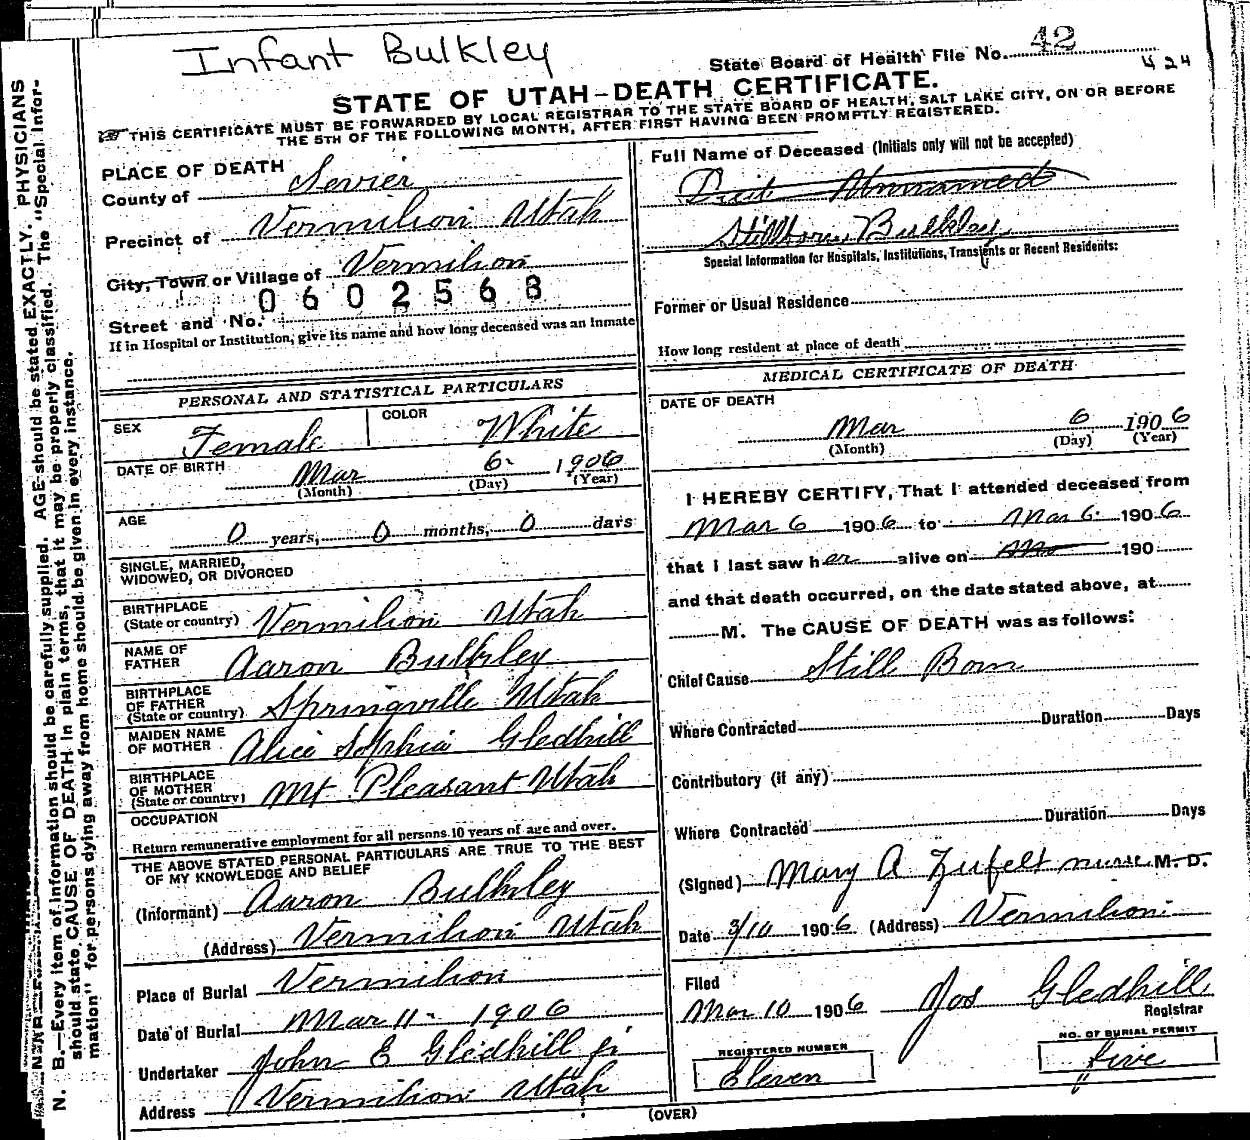 Infant Bulkley
State Board of Health File No. 42
424
STATE OF UTAH—DEATH CERTIFICATE.
THIS CERTIFICATE MUST BE FORWARDED BY LOCAL REGISTRAR TO THE STATE BOARD OF HEALTH, SALT LAKE CITY, ON OR BEFORE
THE 5TH OF THE FOLLOWING MONTH, AFTER FIRST HAVING BEEN PROMPTLY REGISTERED.
PLACE OF DEATH
County of Sevier
Precinct of Vermilion Utah
City, Town or Village of Vermilion
0602568
Street and No.
If in Hospital or Institution, give its name and how long deceased was an Inmate
PERSONAL AND STATISTICAL PARTICULARS
SEX Female COLOR White
DATE OF BIRTH Mar 6 1906
(Month) (Day) (Year)
AGE
0 years, 0 months, 0 days
SINGLE, MARRIED,
WIDOWED, OR DIVORCED
BIRTHPLACE
(State or country) Vermilion Utah
NAME OF
FATHER Aaron Bulkley
BIRTHPLACE
OF FATHER
(State or country) Springville Utah
MAIDEN NAME
OF MOTHER Alice Sophia Gledhill
BIRTHPLACE
OF MOTHER
(State or country) Mt Pleasant Utah
OCCUPATION
Return remunerative employment for all persons 10 years of age and over.
THE ABOVE STATED PERSONAL PARTICULARS ARE TRUE TO THE BEST
OF MY KNOWLEDGE AND BELIEF
(Informant) Aaron Bulkley
(Address) Vermilion Utah
Place of Burial Vermilion
Date of Burial Mar 11 1906
Undertaker John E Gledhill jr
Address Vermilion Utah
Full Name of Deceased (Initials only will not be accepted)
Unnamed
Stillborn Bulkley
Special Information for Hospitals, Institutions, Transients or Recent Residents:
Former or Usual Residence
How long resident at place of death
MEDICAL CERTIFICATE OF DEATH
DATE OF DEATH
Mar 6 1906
(Month) (Day) (Year)
I HEREBY CERTIFY, That I attended deceased from
Mar 6 1906 to Mar 6 1906
that I last saw her alive on 190
and that death occurred, on the date stated above, at
M. The CAUSE OF DEATH was as follows:
Chief Cause Still Born
Where Contracted Duration Days
Contributory (if any)
Where Contracted Duration Days
(Signed) Mary A Zufelt nurse M. D.
Date 3/10 1906 (Address) Vermilion
Filed
Mar 10 1906 Jos Gledhill
Registrar
REGISTERED NUMBER
Eleven
NO. OF BURIAL PERMIT
five
(OVER)
N. B.—Every item of information should be carefully supplied. AGE should be stated EXACTLY. PHYSICIANS
should state CAUSE OF DEATH in plain terms, that it may be properly classified. The "Special Infor-
mation" for persons dying away from home should be given in every instance.